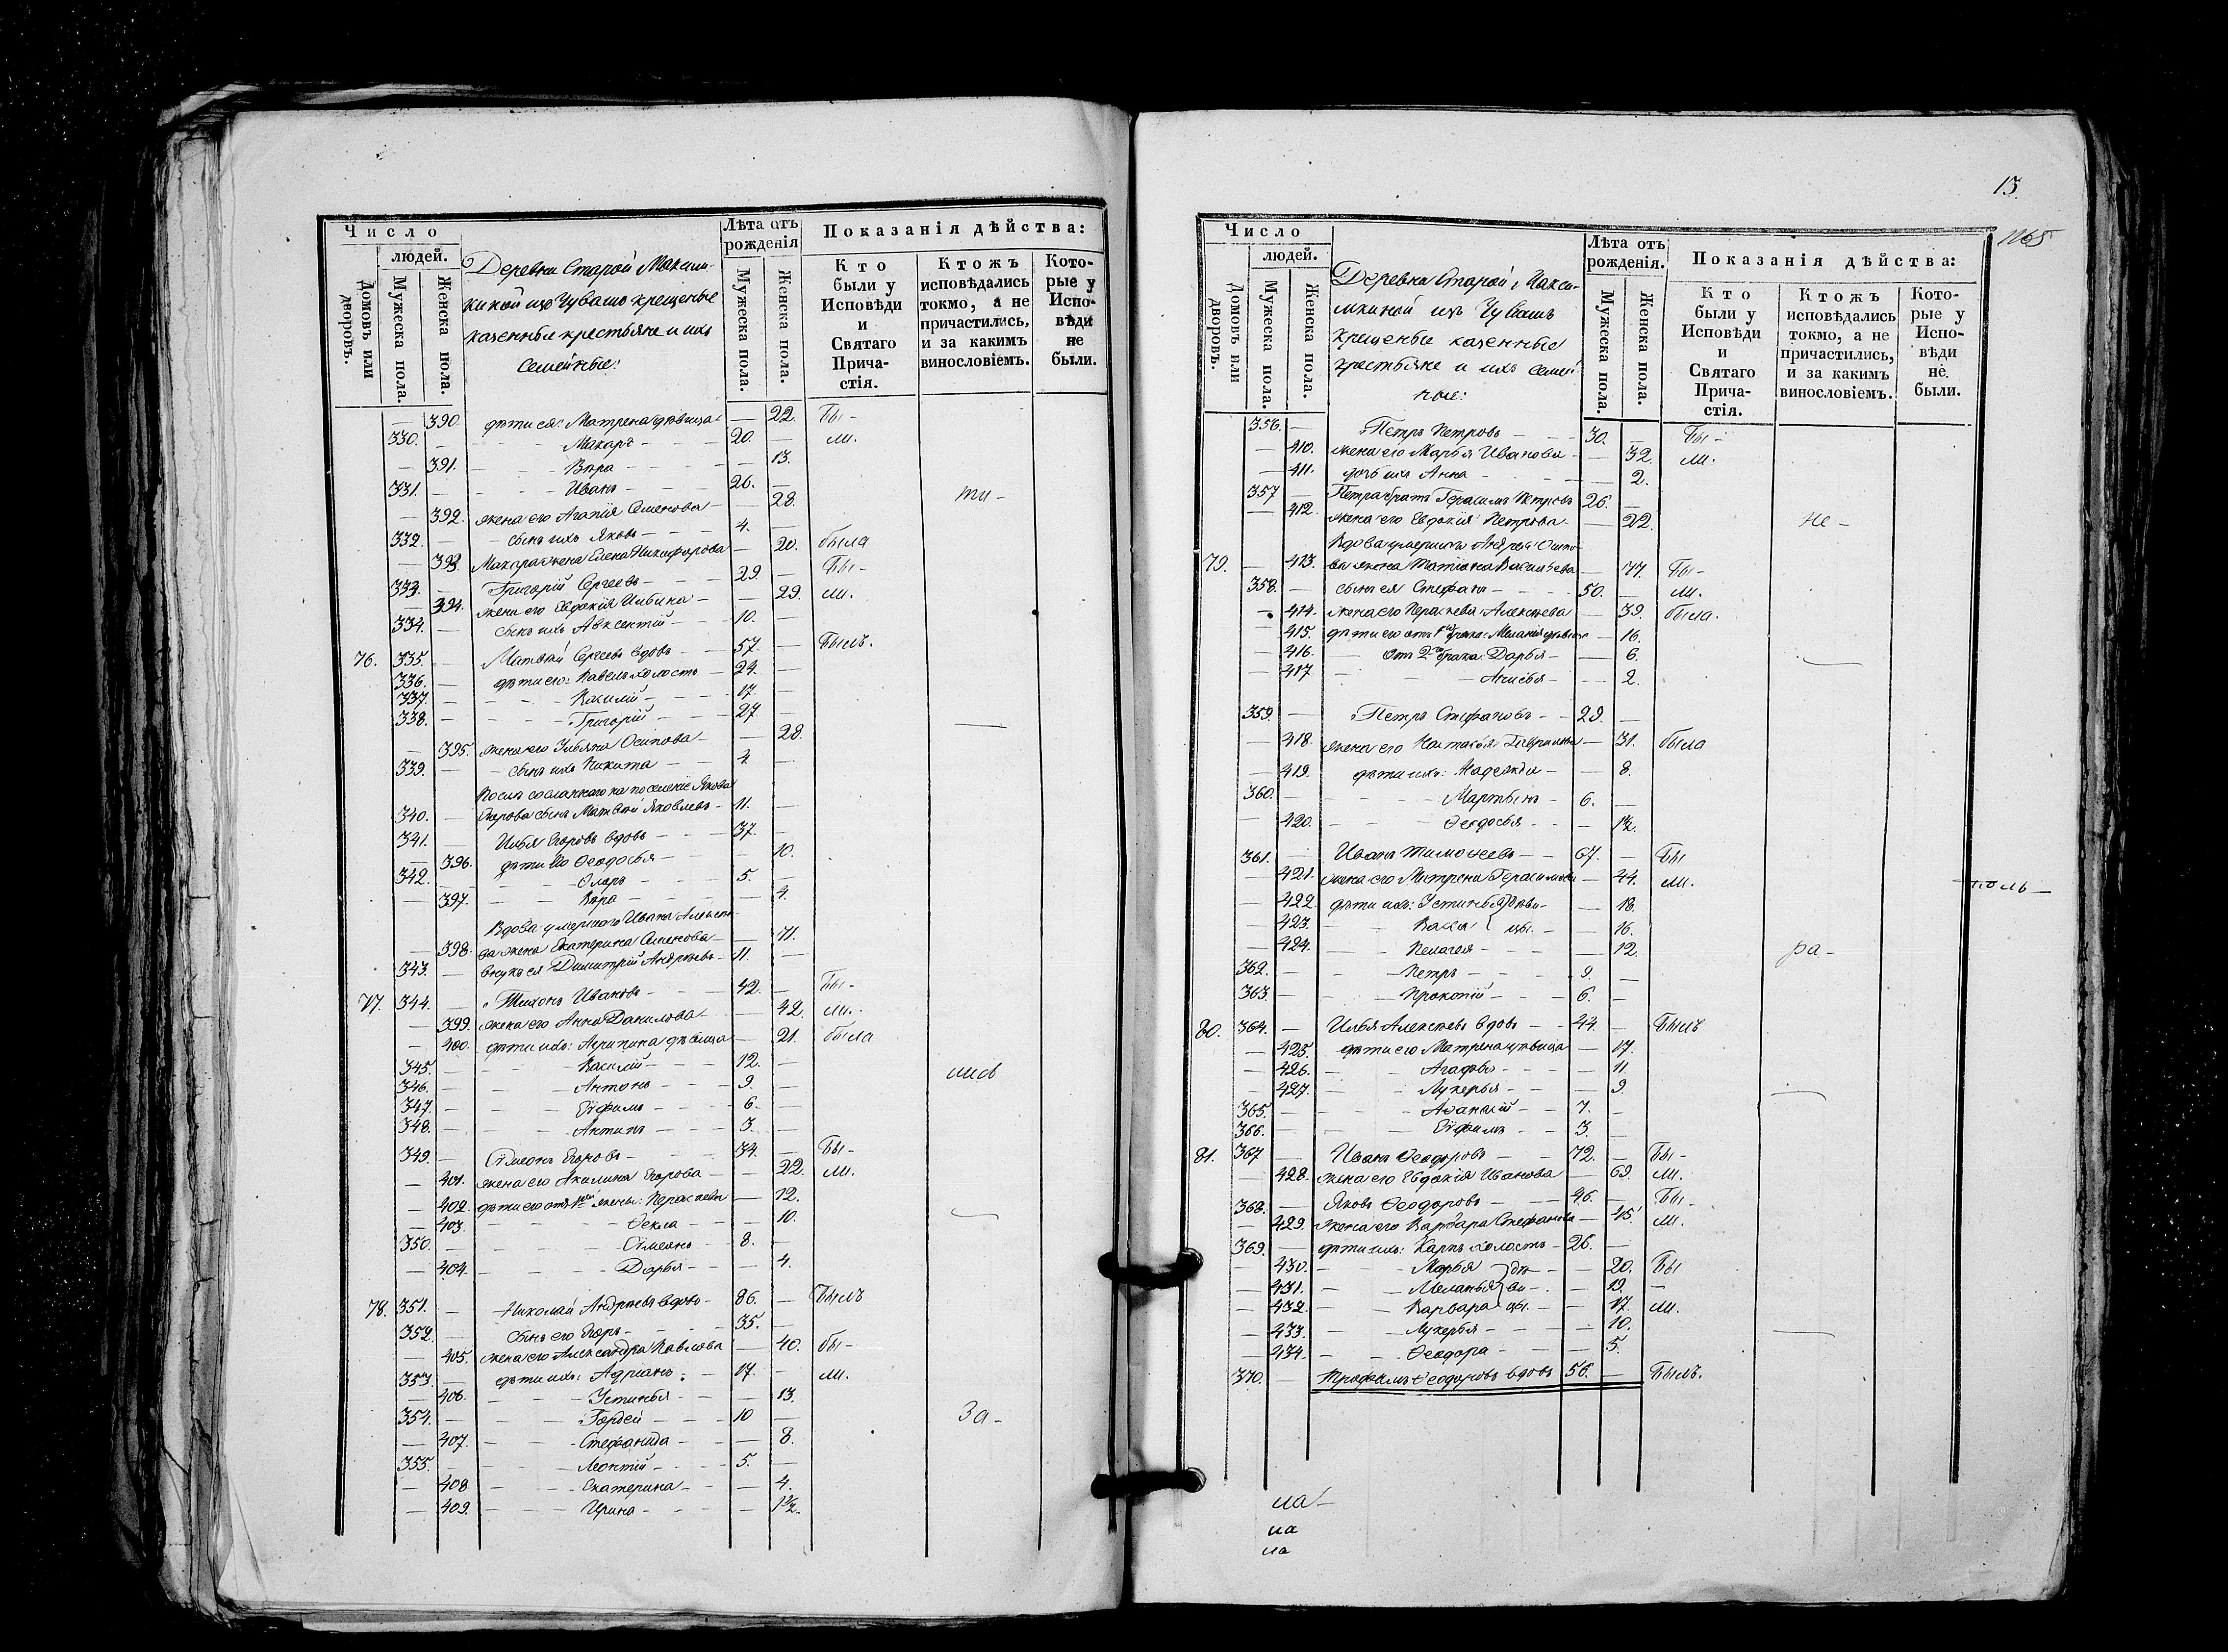 Число
людей.
Домовъ или дворовъ.
Мужеска пола.
Женска пола.
Деревни Старой Максим-
киной изъ Чувашъ крещеные
казенные крестьяне и ихъ
семейные:
Лѣта отъ рожденія
Мужеска пола.
Женска пола.
Показанія дѣйства:
Кто были у Исповѣди и Святаго Причастія.
Ктожъ исповѣдались токмо, а не причастились, и за какимъ винословіемъ.
Которые у Исповѣди не были.
— 390. дѣти ея: Матрена дѣвица — 22. Бы-
330. — Макаръ — 20. — ли.
— 391. — Вѣра — — 13.
331. — Иванъ — 26. —
— 392. жена его Агапія Семенова — 28. ти-
332. — сынъ ихъ Яковъ — 4. —
— 393. Макара жена Елена Никифорова — 20. была
333. — Григорій Сергеевъ — 29. — Бы-
— 394. жена его Евдокія Ильина — — 29. ли.
334. — сынъ ихъ Авксентій — 10. —
76. 335. — Матвѣй Сергеевъ вдовъ — 57. — Былъ.
336. — дѣти его: Павелъ холостъ — 24. —
337. — Василій — 17. —
338. — Григорій — 27. —
— 395. жена его Ульяна Осипова — — 28.
339. — сынъ ихъ Никита — 4 —
Послѣ сосланнаго на поселеніе Якова
340. — Егорова сынъ Матвѣй Яковлевъ — 11. —
341. — Илья Егоровъ вдовъ — 37. —
— 396. дѣти его Ѳеодосья — — 10.
342. — 5. —
— 397. — Вѣра — — 4.
Вдова умершаго Ивана Алексѣе-
— 398. ва жена Екатерина Семенова — — 71.
343. — внукъ ея Димитрій Андреевъ — 11. —
77. 344. — Тихонъ Ивановъ — 42. — Бы-
— 399. жена его Анна Данилова — — 42. ли.
— 400. дѣти ихъ: Агрипина дѣвица — 21. была
345. — Василій — 12. —
346. — Антонъ — 9. — лись
347. — Ефимъ — 6. —
348. — Антипъ — 3. —
349. — Симеонъ Егоровъ — 34. — Бы-
— 401. жена его Акилина Егорова — — 22. ли.
— 402. дѣти его отъ 1й жены: Параскева — 12.
— 403. — Ѳекла — — 10.
350. — Симеонъ — 8. —
— 404. — Дарья — — 4.
78. 351. — Николай Андреевъ вдовъ — 86. — Былъ
352. — сынъ его Егоръ — 35. —
— 405. жена его Александра Павлова — 40. бы-
353. — дѣти ихъ: Адріанъ — 17. — ли.
— 406. — Устинья — — 13.
354. — Гордей — 10 — За-
— 407. — Стефанида — — 8.
355. — Леонтій — 5. —
— 408 — Екатерина — — 4.
— 409. — Ирина — — 1½.
13.
1165
Число
людей.
Домовъ или дворовъ.
Мужеска пола.
Женска пола.
Деревни Старой Макси-
мкиной изъ Чувашъ
крещеные казенные
крестьяне и ихъ семей-
ные:
Лѣта отъ рожденія.
Мужеска пола.
Женска пола.
Показанія дѣйства:
Кто были у Исповѣди и Святаго Причастія.
Ктожъ исповѣдались токмо, а не причастились, и за какимъ винословіемъ.
Которые у Исповѣди не были.
356. — Петръ Петровъ — 30. — Бы-
— 410. жена его Марья Иванова — — 32. ли.
— 411. дочь ихъ Анна — — 2.
357 — Петра братъ Герасимъ Петровъ 26. —
— 412. жена его Евдокія Петрова — — 22. не-
Вдова умершаго Андрея Осипо-
79. — 413. ва жена Татіана Васильева — 77. Бы-
358. — сынъ ея Стефанъ — 50. — ли.
— 414. жена его Параскева Алексѣева — 39. была.
— 415. дѣти его отъ 1го брака: Меланія дѣвица — 16.
— 416. — Отъ 2го брака: Дарья — — 6.
— 417 — Анисья — — 2.
359. — Петръ Стефановъ — 29. —
— 418. жена его Наталья Гаврилова — 31. была
— 419. дѣти ихъ: Надежда — — 8.
360. — Мартынъ — 6. —
— 420. — Ѳеодосья — — 1½.
361. — Иванъ Тимоѳеевъ — 67. — Бы
— 421. жена его Матрена Герасимова — 44. ли.
поль-
— 422. дѣти ихъ: Устинья дѣви- — 18.
— 423. — цы. — 16.
— 424. — Пелагея — — 12. ра-
362. — Петръ — 9. —
363. — Прокопій — 6. —
80. 364. — Илья Алексѣевъ вдовъ — 44. — Былъ
— 425. дѣти его Матрена дѣвица — 17.
— 426. — Агафья — — 11.
— 427. — Лукерья — — 9.
365. — Аѳанасій — 7. —
366. — Ефимъ — 3. —
81. 367 — Иванъ Ѳеодоровъ — 72. — Бы-
— 428. жена его Евдокія Иванова — 69. ли.
368. — Яковъ Ѳеодоровъ — 46. — Бы-
— 429. жена его Варвара Стефанова — 45. ли.
369. — дѣти ихъ: Карпъ холостъ — 26. —
— 430. — Марья дѣ- — 20. Бы
— 431. — Меланья ви- — 19. —
— 432. — Варвара цы. — 17. ли.
— 433. — Лукерья — — 10.
— 434. — Ѳеодора — — 5.
370. — Трофимъ Ѳеодоровъ вдовъ 56. — Былъ.
ла-
ла
ла